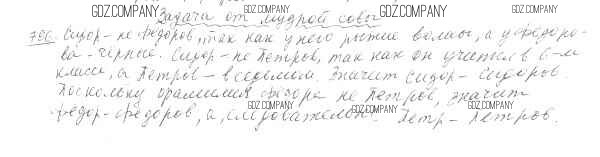 GDZ.COMPANY GDZ.COMPANY GDZ.COMPANY
Задачи от мудрой совы
786. Сидор - не Федоров, так как у него рыжие волосы, а у Федоро-
ва - чёрные. Сидор - не Петров, так как он учится в 6-м
классе, а Петров - в седьмом. Значит Сидор - Сидоров.
GDZ.COMPANY GDZ.COMPANY
Поскольку фамилия Фёдора не Петров, значит
GDZ.COMPANY GDZ.COMPANY
Фёдор - Федоров, а, следовательно Петр - Петров.
GDZ.COMPANY GDZ.COMPANY GDZ.COMPANY